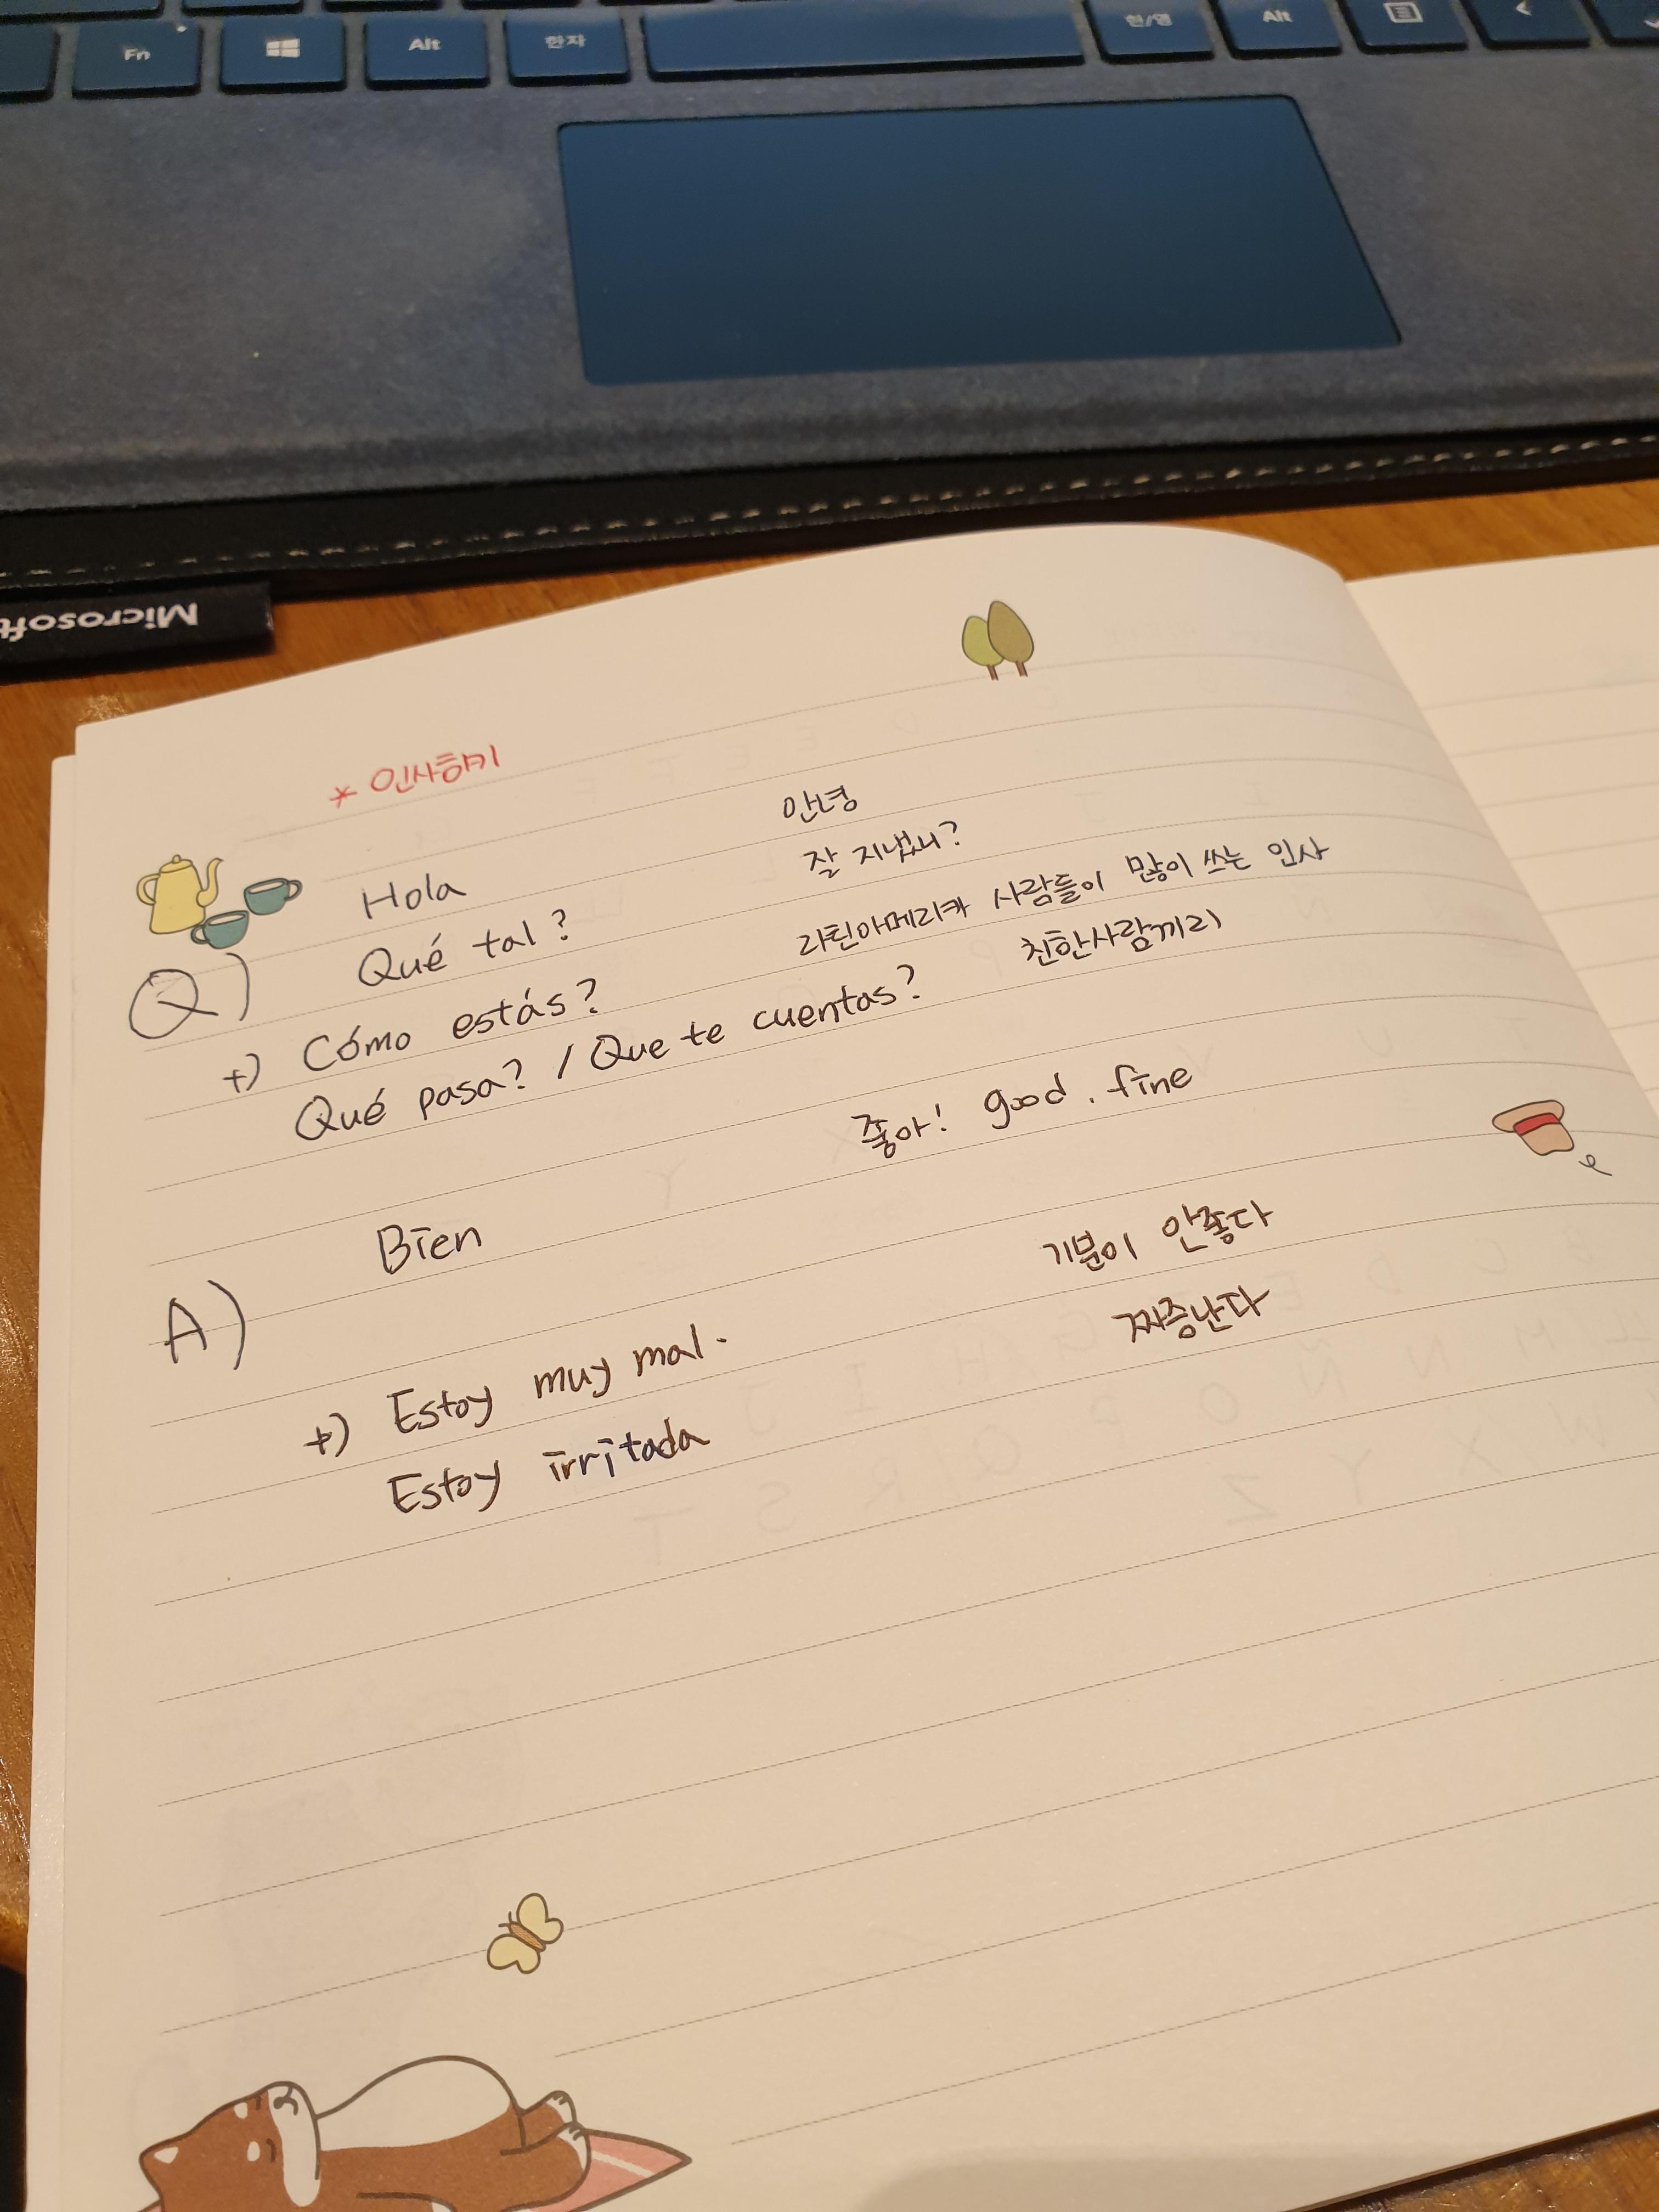 Fn Alt 한자 한/영 Alt
Microsoft
* 인사하기
Hola 안녕
Q) Qué tal? 잘 지냈니?
+) Cómo estás? 라틴아메리카 사람들이 많이 쓰는 인사
Qué pasa? / Que te cuentas? 친한사람끼리
A) Bien 좋아! good. fine
+) Estoy muy mal. 기분이 안좋다
Estoy irritada 짜증난다